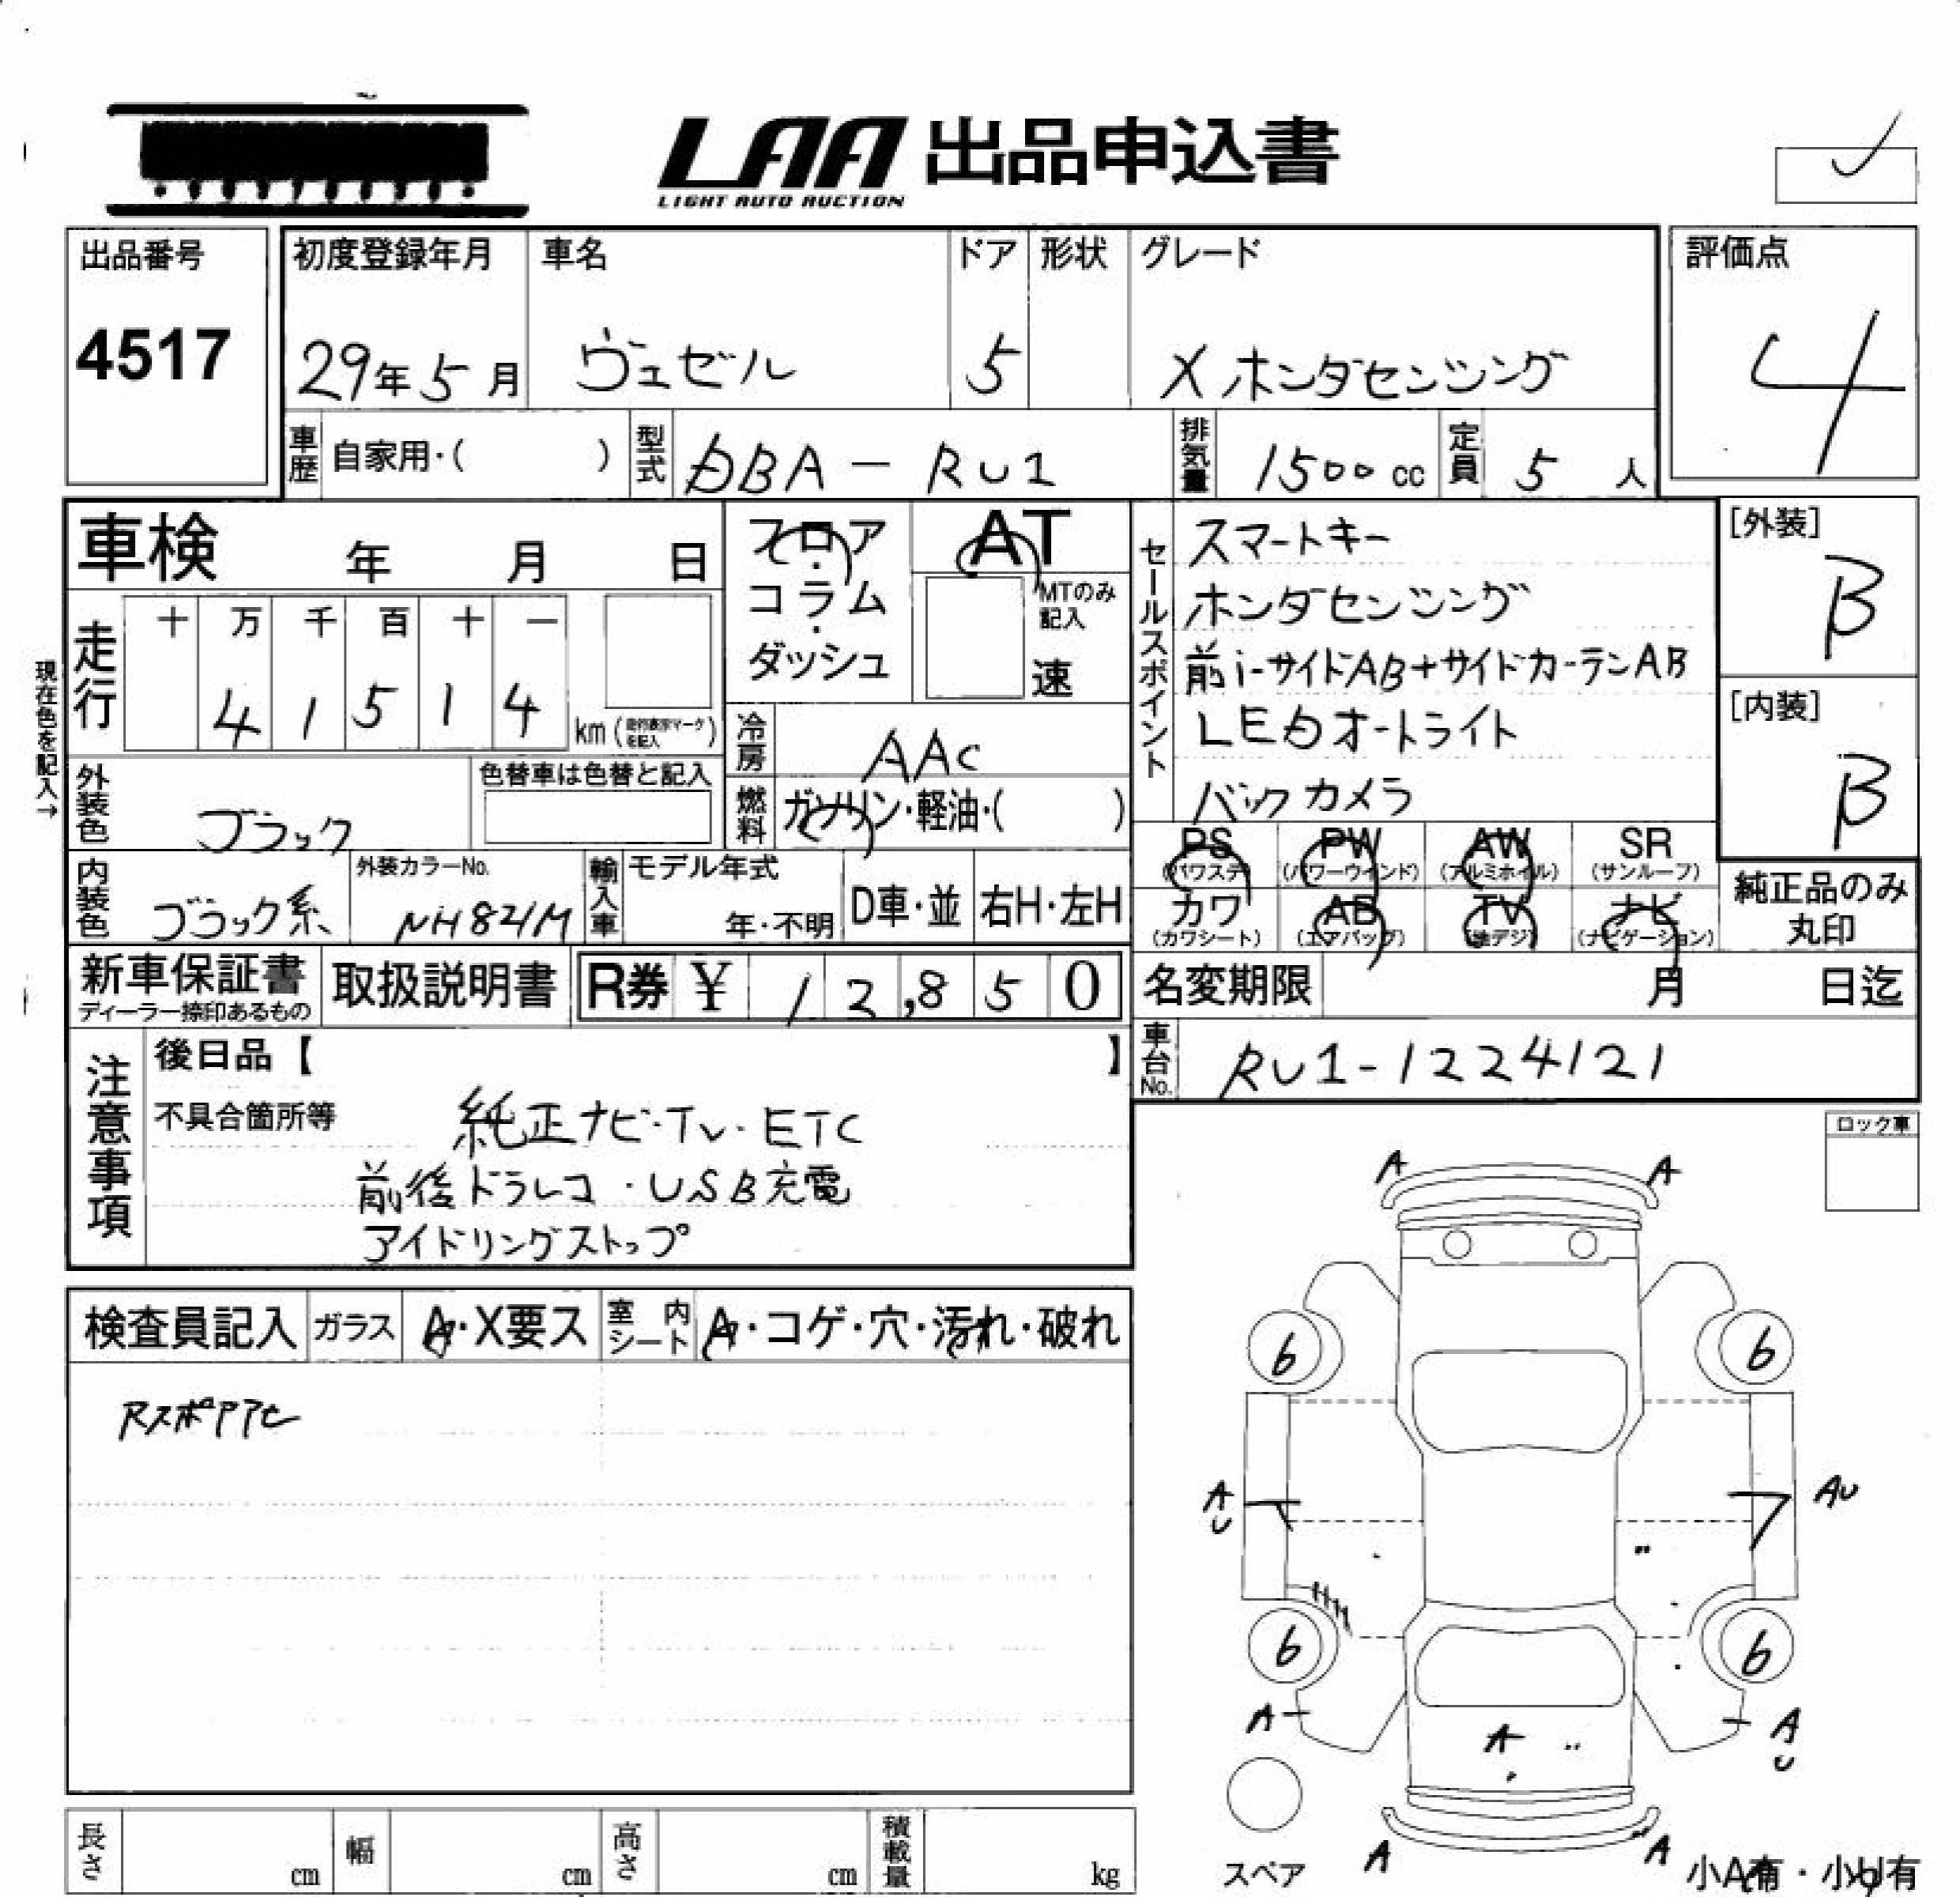 LAA 出品申込書
LIGHT AUTO AUCTION
出品番号
4517
初度登録年月
29年5月
車名
ヴェゼル
ドア
5
形状
グレード
X ホンダセンシング
評価点
4
車歴
自家用・( )
型式
DBA-RU1
排気量
1500cc
定員
5人
車検 年 月 日
現在色を記入→
走行
十 万 千 百 十 一
4 1 5 1 4
km (走行表示マークを記入)
フロア・コラム・ダッシュ
AT
MTのみ記入
速
冷房
AAC
燃料
ガソリン・軽油・( )
外装色
ブラック
色替車は色替と記入
内装色
ブラック系
外装カラーNo.
NH821M
輸入車
モデル年式
年・不明
D車・並
右H・左H
セールスポイント
スマートキー
ホンダセンシング
前i-サイドAB+サイドカーテンAB
LEDオートライト
バックカメラ
[外装]
B
[内装]
B
PS (パワステ)
PW (パワーウインド)
AW (アルミホイル)
SR (サンルーフ)
カワ (カワシート)
AB (エアバッグ)
TV (地デジ)
ナビ (ナビゲーション)
純正品のみ丸印
新車保証書
ディーラー捺印あるもの
取扱説明書
R券 ¥ 12,850
名変期限 月 日迄
車台No.
RU1-1224121
注意事項
後日品【 】
不具合箇所等
純正ナビ・TV・ETC
前後ドラレコ・USB充電
アイドリングストップ
ロック車
検査員記入
ガラス
A・X要ス
室内シート
A・コゲ・穴・汚れ・破れ
A A
6 6
A U
AU
6 6
A
A U
A
A
A
スペア
小A有・小U有
長さ cm
幅 cm
高さ cm
積載量 kg